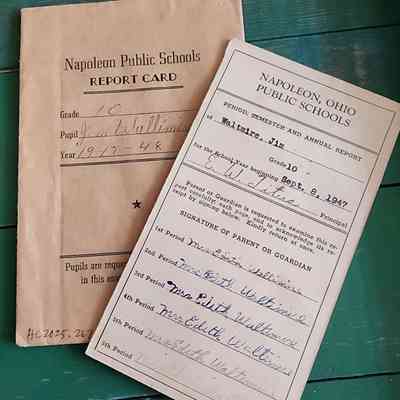 Napoleon Public Schools
REPORT CARD
Grade 10
Pupil Jim Waltmire
Year 1947-48
Pupils are reque
in this env
HC2025.
NAPOLEON, OHIO
PUBLIC SCHOOLS
PERIOD, SEMESTER AND ANNUAL REPORT
of Waltmire, Jim
Grade 10
for the School Year beginning Sept. 8, 1947
Principal
Parent or Guardian is requested to examine this re-
port carefully, each page, and to acknowledge its re-
ceipt by signing below. Kindly return at once.
SIGNATURE OF PARENT OR GUARDIAN
1st Period Mrs Edith Waltmire
2nd Period Mrs Edith Waltmire
3rd Period Mrs Edith Waltmire
4th Period Mrs Edith Waltmire
5th Period Mrs Edith Waltmire
Period